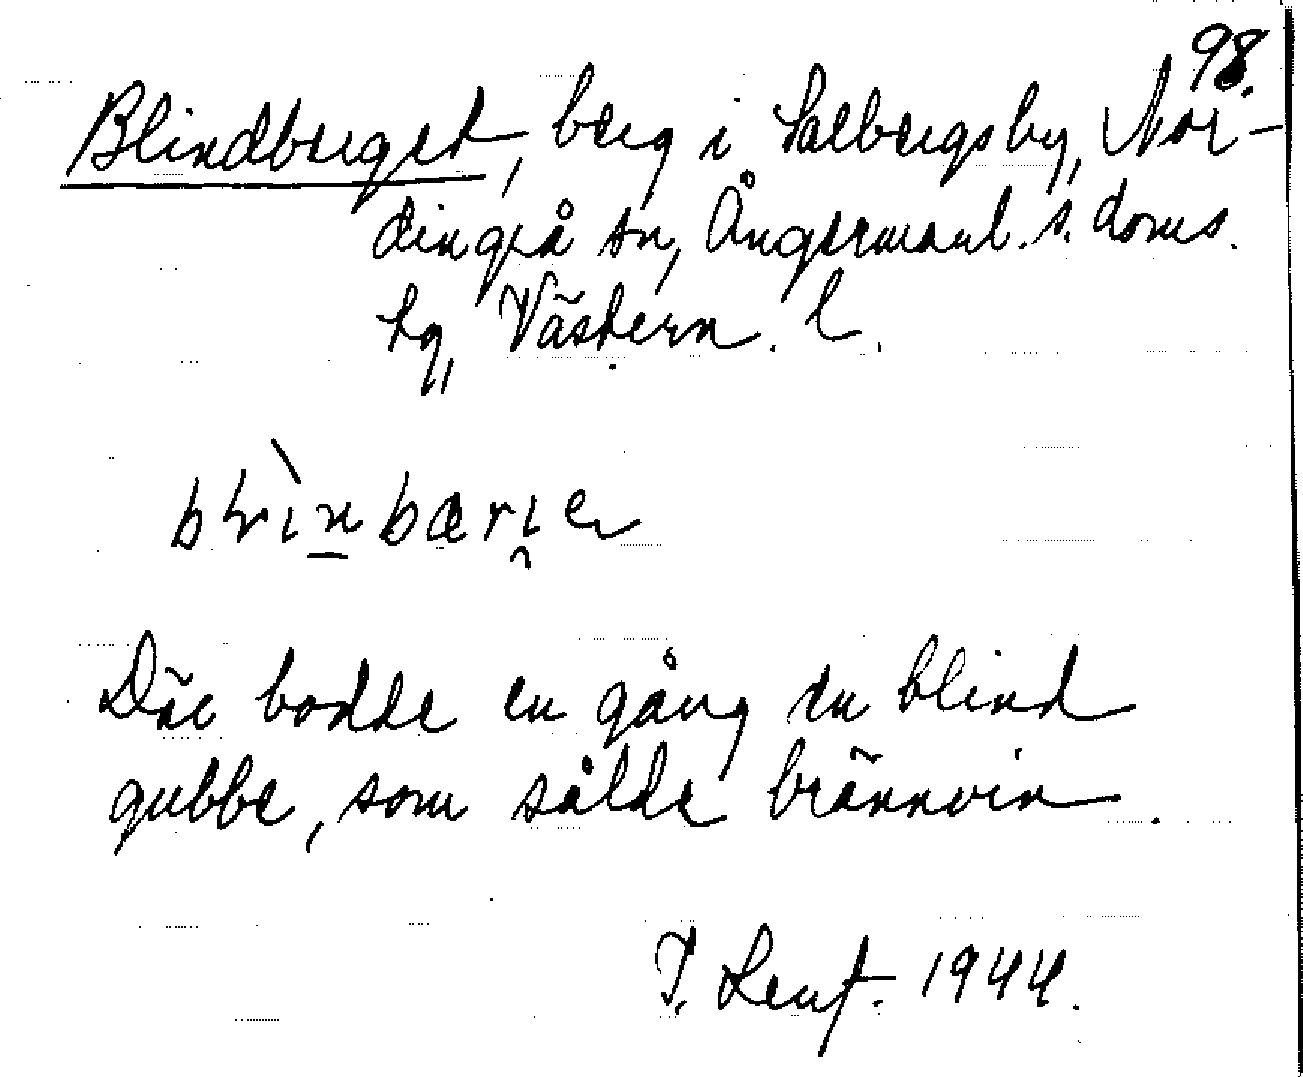 98.
Blindberget, berg i Salbergsby, Nor-
dingrå sn, Ångermanl. s. doms.
hg, Västern. l.
Där bodde en gång en blind
gubbe, som sålde brännvin.
1944.